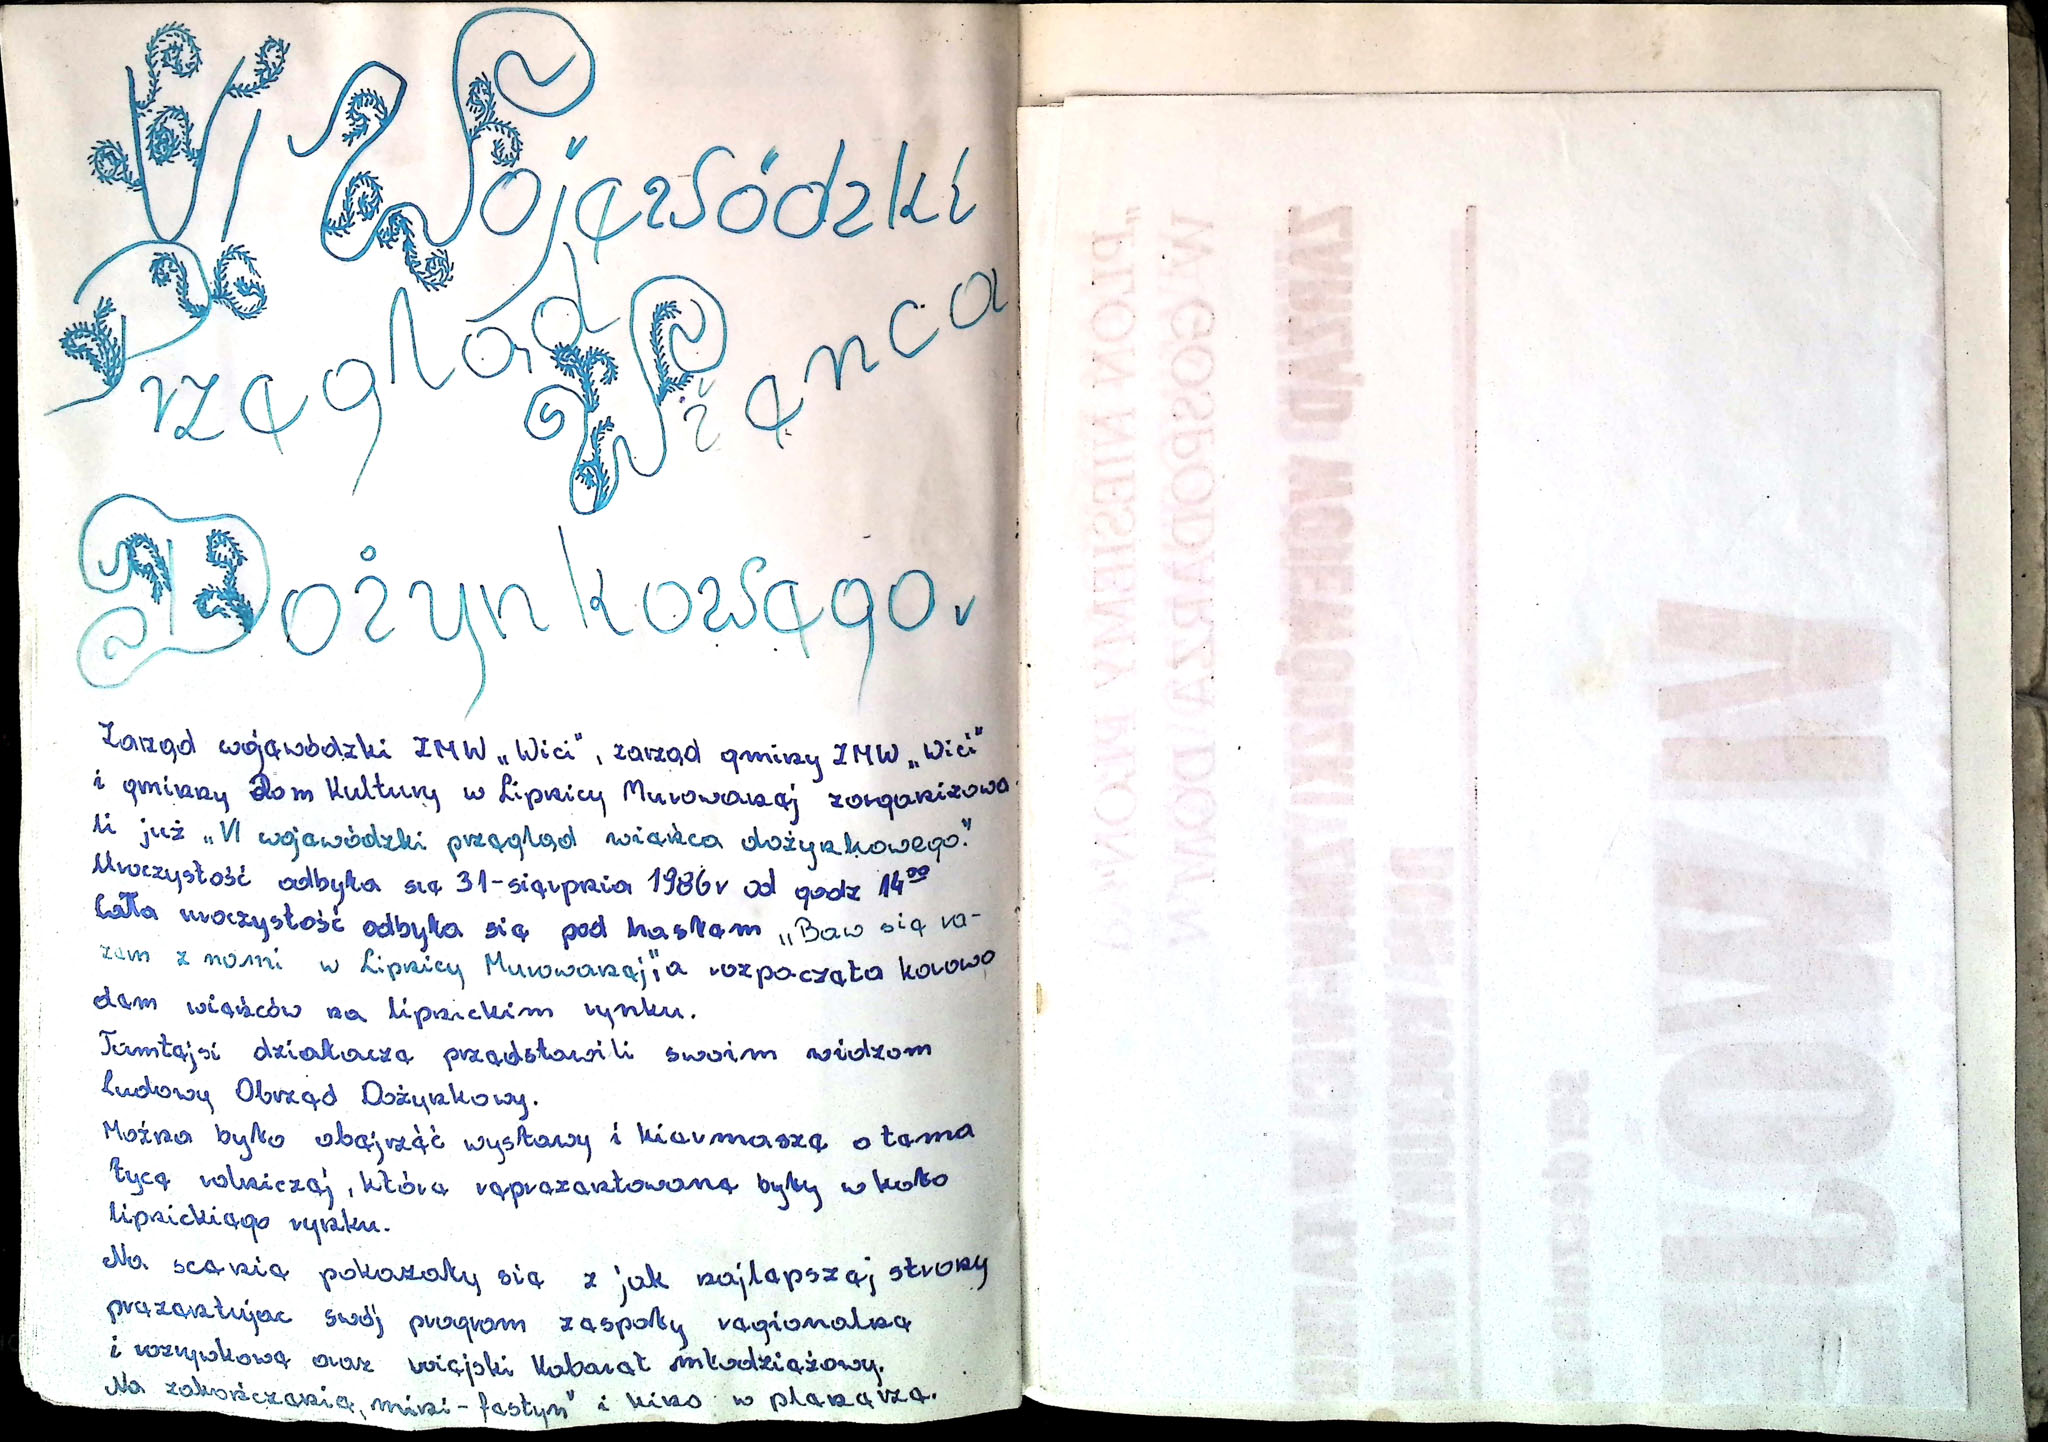 VI Wojewódzki
Przegląd Wieńca
Dożynkowego.
Zarząd wojewódzki ZMW „Wici”, zarząd gminy ZMW „Wici”
i gminny Dom Kultury w Lipnicy Murowanej zorganizowa
li już „VI wojewódzki przegląd wieńca dożynkowego.”
Uroczystość odbyła się 31-sierpnia 1986r od godz 14⁰⁰
Cała uroczystość odbyła się pod hasłem „Baw się ra-
zem z nami w Lipnicy Murowanej”; a rozpoczęta korowo
dem wieńców na lipnickim rynku.
Tamtejsi działacze przedstawili swoim widzom
Ludowy Obrzęd Dożynkowy.
Można było obejrzeć wystawy i kiermasze o tema
tyce rolniczej, które reprezentowane były w koło
lipnickiego rynku.
Na scenie pokazały się z jak najlepszej strony
prezentując swój program zespoły regionalne
i rozrywkowe oraz wiejski Kabaret młodzieżowy.
Na zakończenie „mini-festyn” i kino w plenerze.
„PLON NIESIEMY PLON
W GOSPODARZA DOM”
ZARZĄD WOJEWÓDZKI ZMW
DOM KULTURY